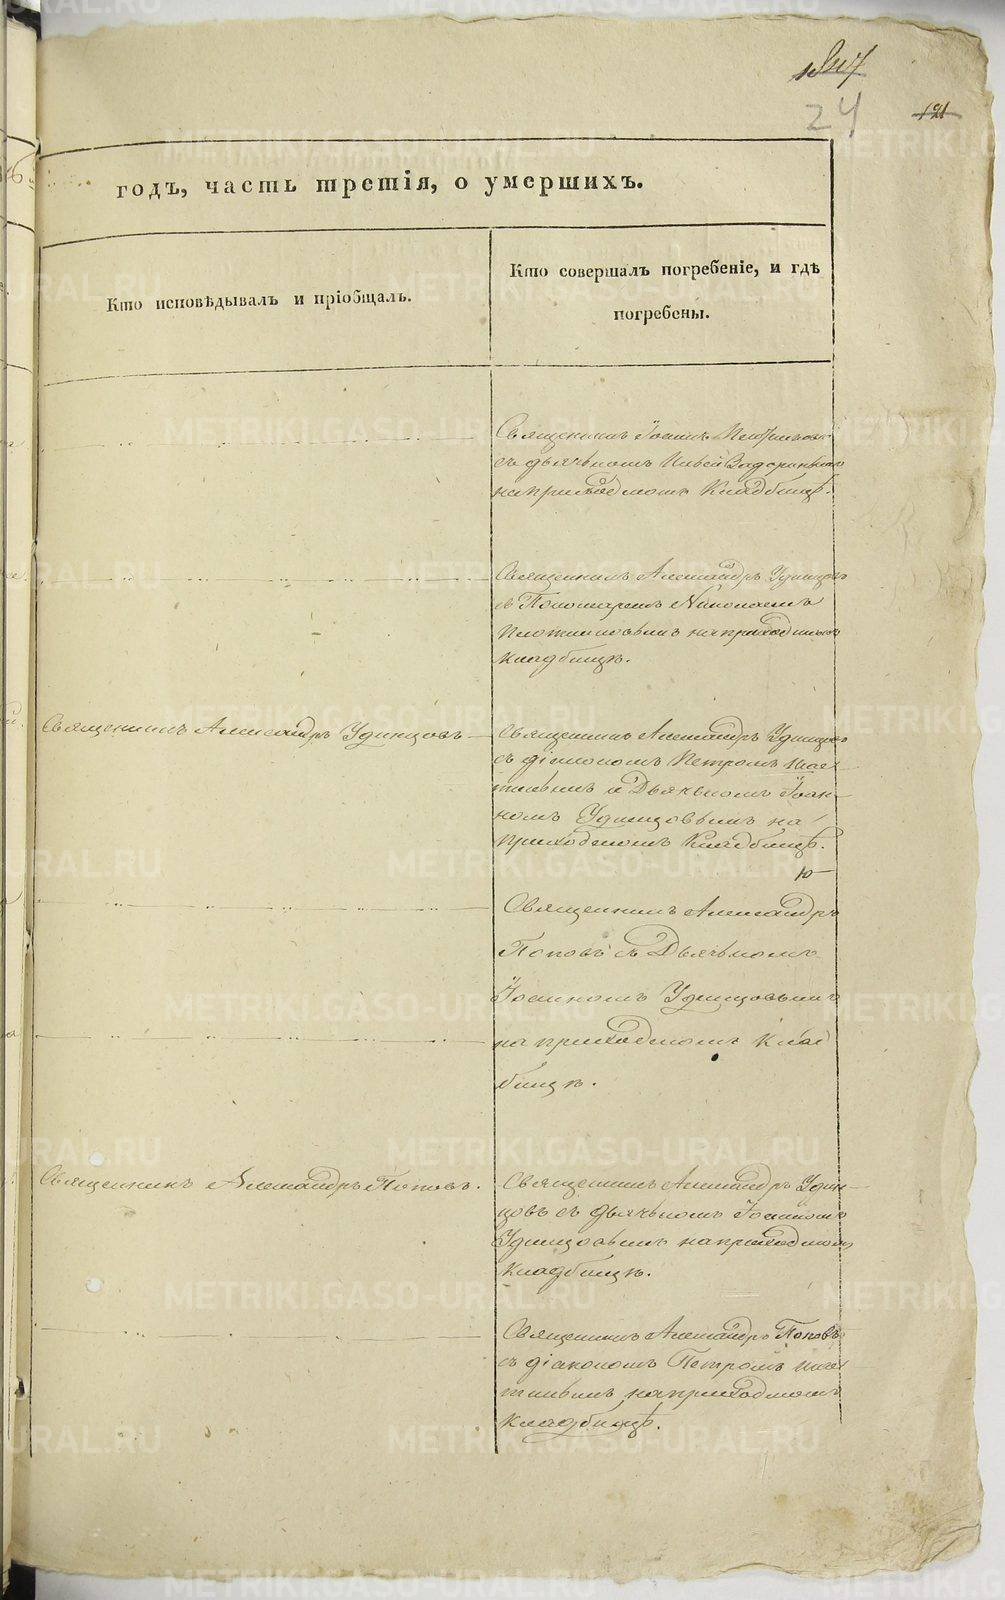 24
121
годъ, часть третія, о умершихъ.
Кто исповѣдывалъ и пріобщалъ.
Кто совершалъ погребеніе, и гдѣ
погребены.
Священникъ Іоаннъ
съ дьячькомъ
на приходскомъ Кладбищѣ.
Священникъ Александръ Удинцовъ
съ Пономаремъ Николаемъ
на приходскомъ
кладбищѣ.
Священникъ Александръ Удинцовъ
Священникъ Александръ Удинцовъ
съ діакономъ Петромъ
и Дьячькомъ Іоан-
номъ Удинцовымъ на
приходскомъ Кладбищѣ.
Священникъ Александръ
Поповъ съ Дьячькомъ
Іоанномъ Удинцовымъ
на приходскомъ Клад
бищѣ.
Священникъ Александръ Поповъ.
Священникъ Александръ Удин-
цовъ съ дьячькомъ Іоанномъ
Удинцовымъ на приходскомъ
кладбищѣ.
Священникъ Александръ Поповъ
съ діакономъ Петромъ
на приходскомъ
кладбищѣ.
METRIKI.GASO-URAL.RU